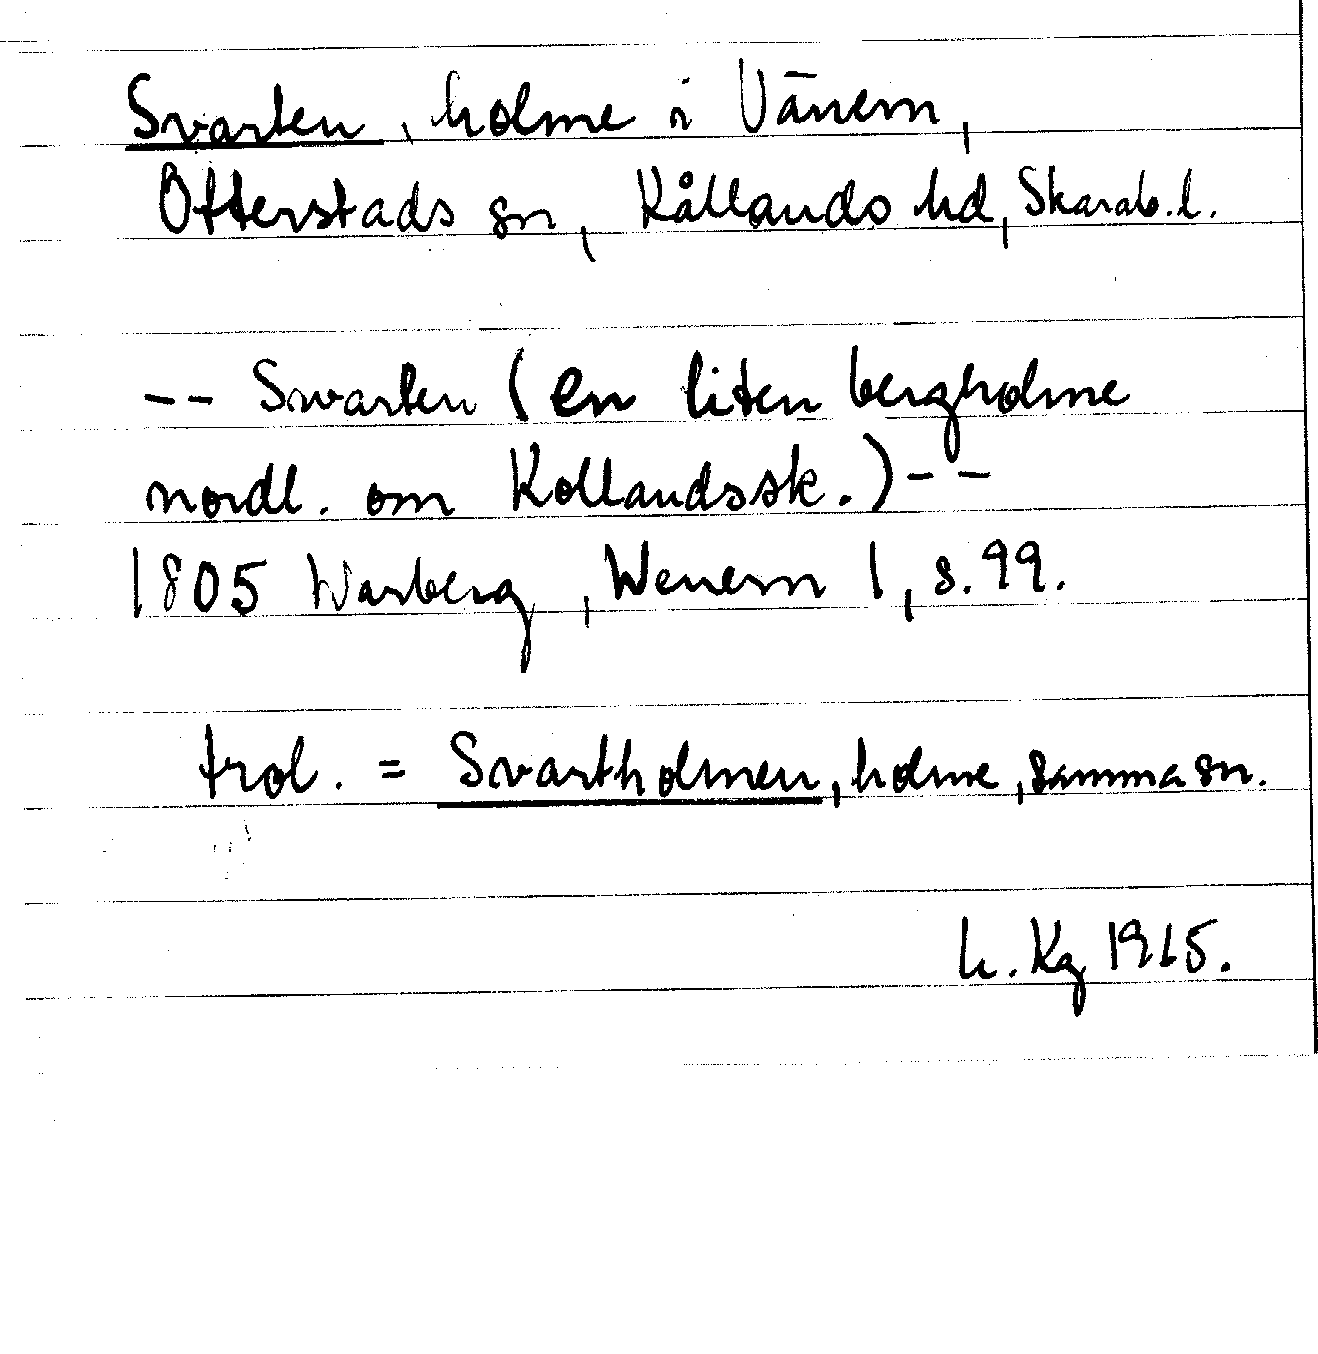 Svarten, holme i Vänern,
Otterstads sn, Kållands hd, Skarab. l.
-- Swarten (en liten bergholme
nordl. om Kollandssk.) --
1805 Warberg, Wenern 1, s. 99.
trol. = Svartholmen, holme, samma sn.
h. Kg 1965.